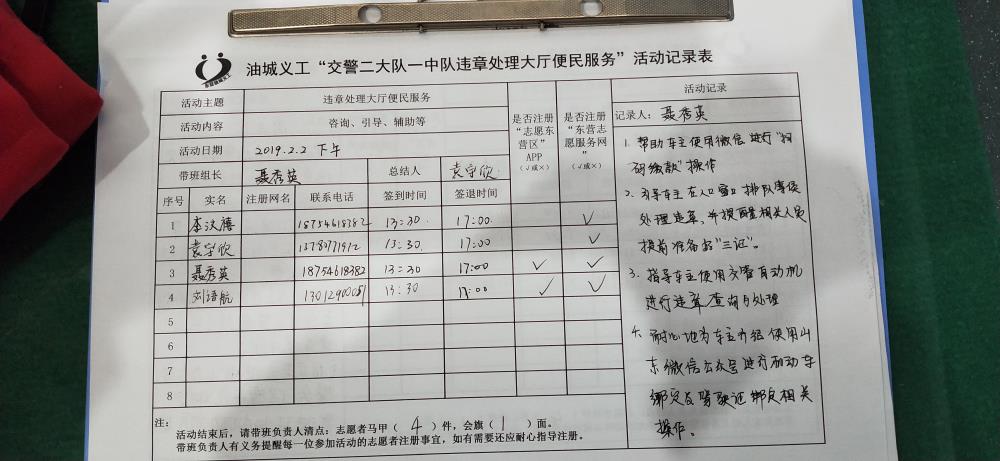 油城义工
油城义工“交警二大队一中队违章处理大厅便民服务”活动记录表
活动主题 违章处理大厅便民服务
活动内容 咨询、引导、辅助等
活动日期 2019.2.2 下午
带班组长 聂秀英 总结人 袁守欣
是否注册“志愿东营区”APP（√或×）
是否注册“东营志愿服务网”（√或×）
序号 实名 注册网名 联系电话 签到时间 签退时间
1 李汶禧 18754618382 13:30. 17:00. √
2 袁守欣 13:30. 17:00 √
3 聂秀英 18754618382 13:30 17:00 √ √
4 刘语航 13:30 17:00 √ √
5
6
7
8
注：
活动结束后，请带班负责人清点：志愿者马甲（ 4 ）件，会旗（ 1 ）面。
带班负责人有义务提醒每一位参加活动的志愿者注册事宜，如有需要还应耐心指导注册。
活动记录
记录人：聂秀英
1. 帮助车主使用微信进行“扫
码缴款”操作
2. 引导车主在人口窗口排队等候
处理违章，并提醒相关人员
提前准备好“三证”。
3. 指导车主使用交警自动机
进行违章查询与处理
4. 耐心地为车主介绍使用山
东微信公众号进行机动车
绑定及驾驶证绑定相关
操作。